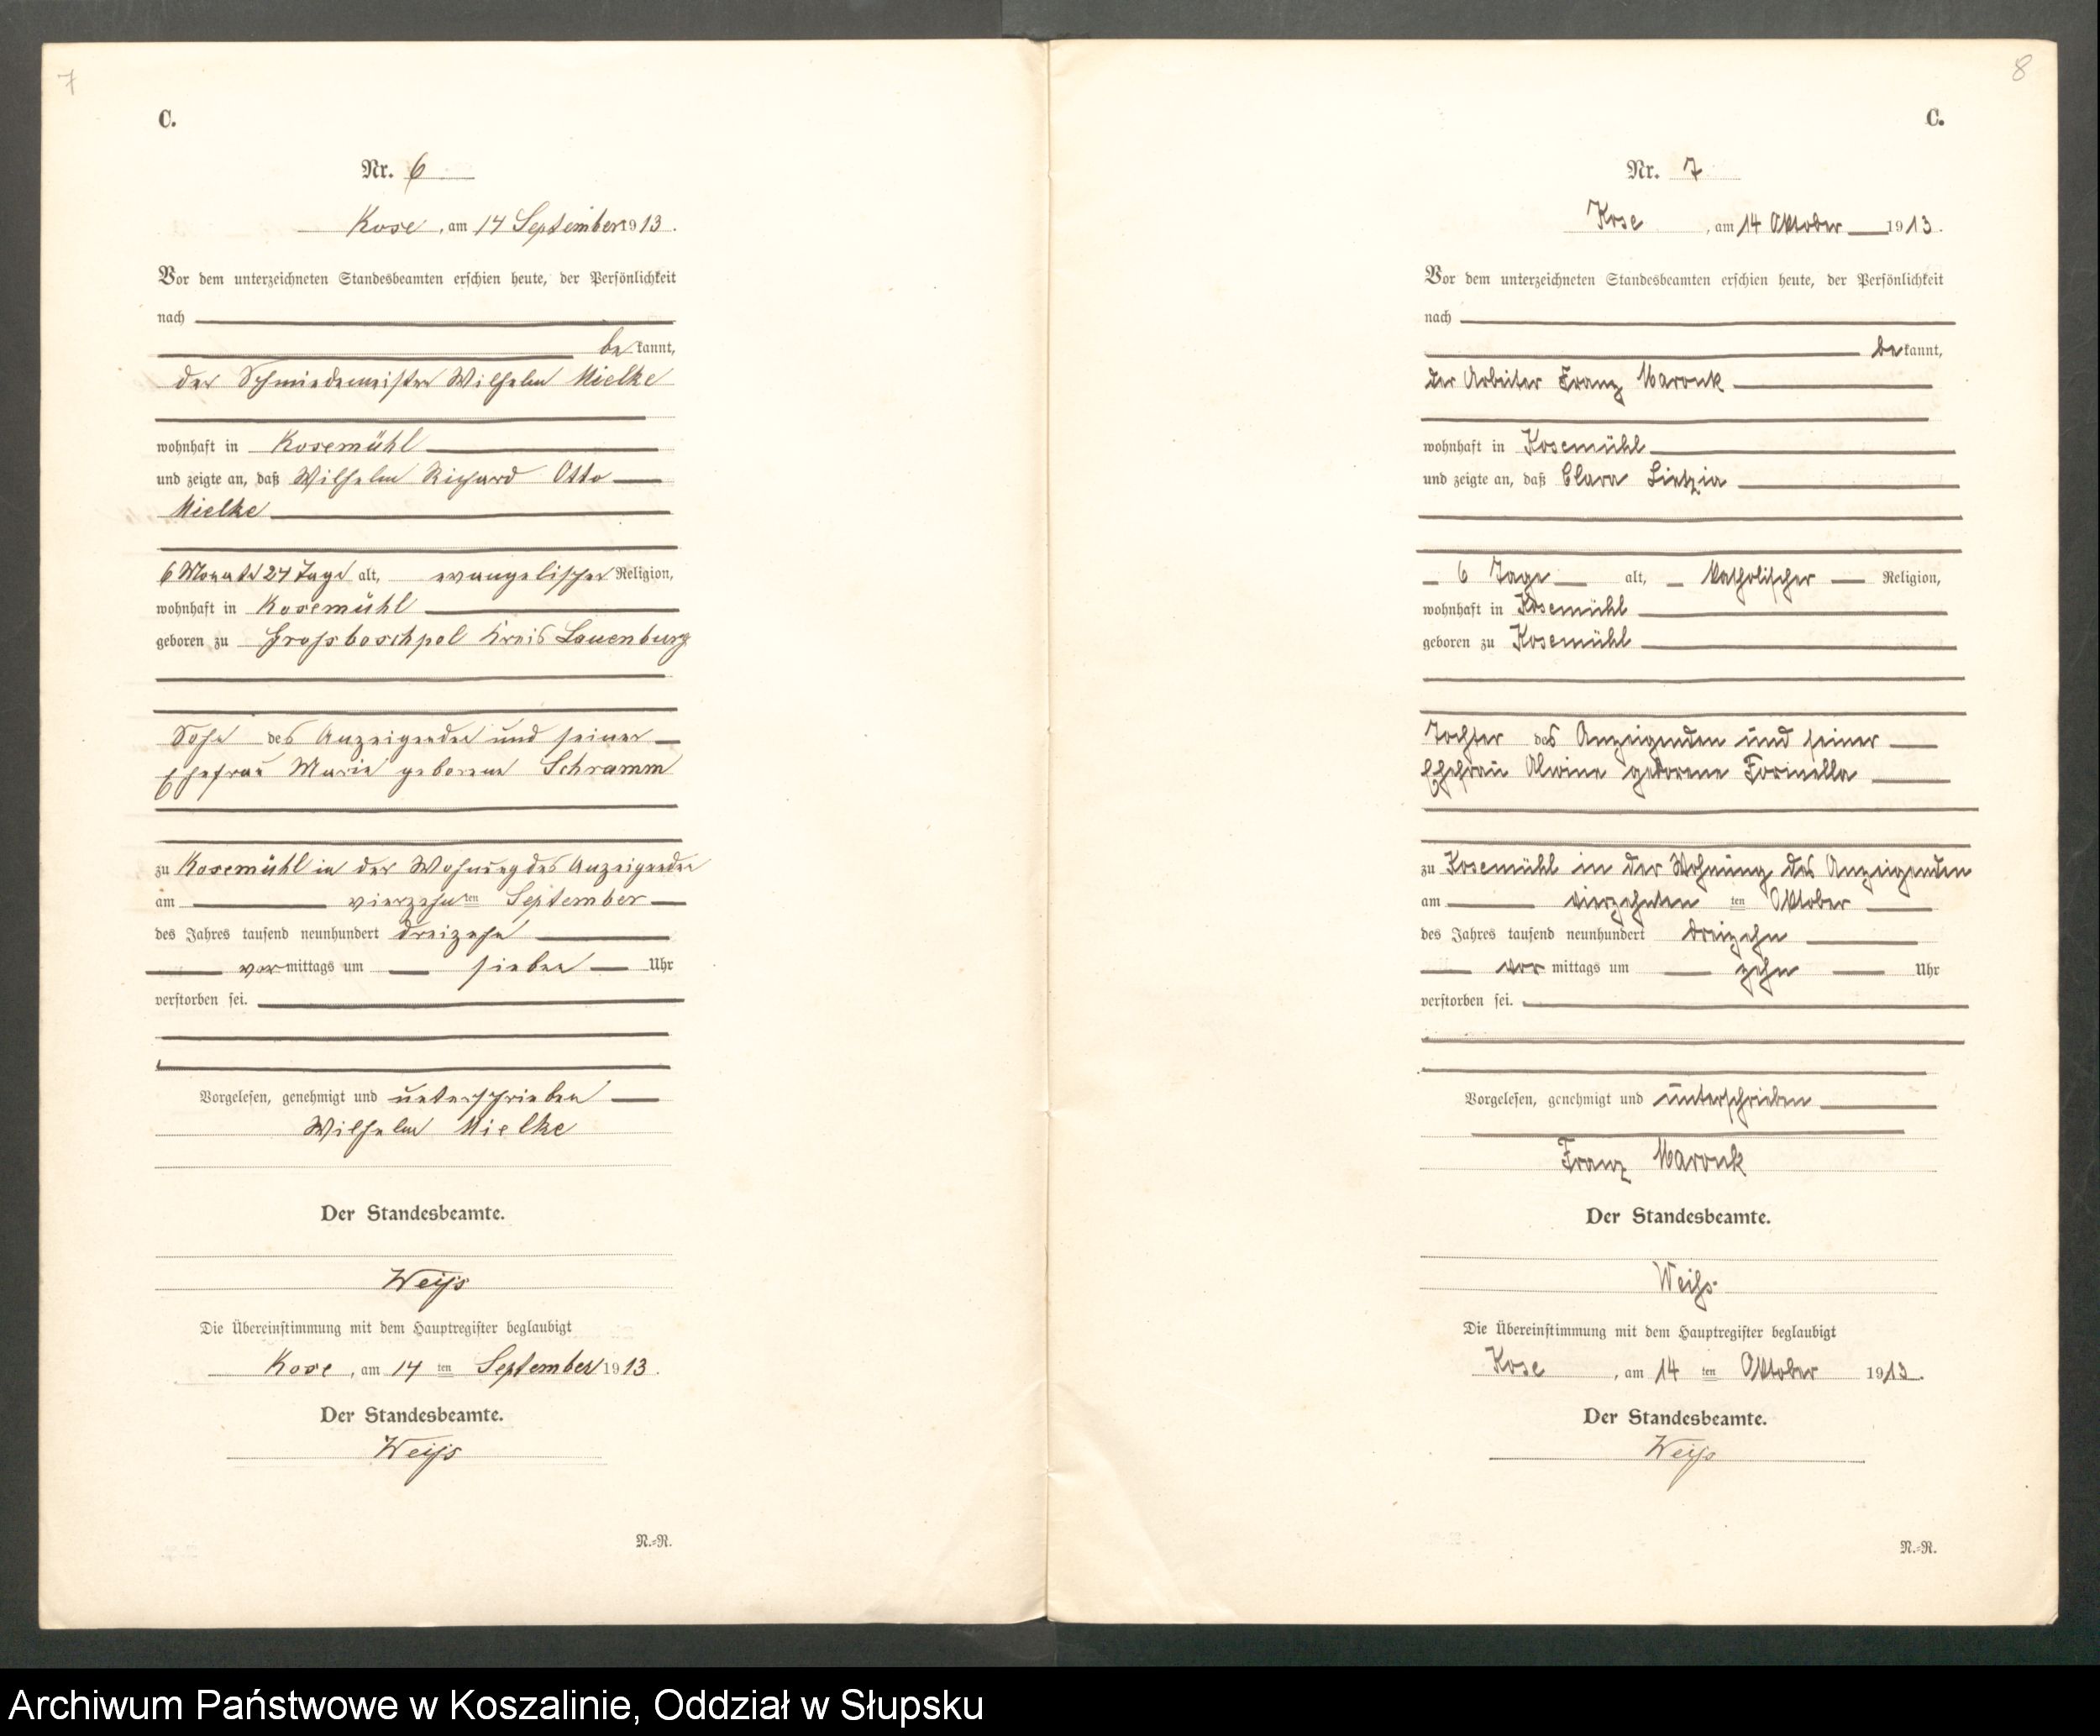 7
C.
Nr. 6
Kose, am 14 September 1913.
Vor dem unterzeichneten Standesbeamten erschien heute, der Persönlichkeit
nach
bekannt,
der Schmiedemeister Wilhelm Mielke
wohnhaft in Kosemühl
und zeigte an, daß Wilhelm Richard Otto
Mielke
6 Monate 24 Tage alt, evangelischer Religion,
wohnhaft in Kosemühl
geboren zu Grossboschpol Kreis Lauenburg
Sohn des Anzeigenden und seiner
Ehefrau Marie geborene Schramm
zu Kosemühl in der Wohnung des Anzeigenden
am vierzehnten September
des Jahres tausend neunhundert dreizehn
vormittags um sieben Uhr
verstorben sei.
Vorgelesen, genehmigt und unterschrieben
Wilhelm Mielke
Der Standesbeamte.
Weiss
Die Übereinstimmung mit dem Hauptregister beglaubigt
Kose, am 14 ten September 1913.
Der Standesbeamte.
Weiss
N.-R.
8
C.
Nr. 7
Kose, am 14 Oktober 1913.
Vor dem unterzeichneten Standesbeamten erschien heute, der Persönlichkeit
nach
bekannt,
der Arbeiter Franz Maronk
wohnhaft in Kosemühl
und zeigte an, daß Clara
6 Tage alt, katholischer Religion,
wohnhaft in Kosemühl
geboren zu Kosemühl
Tochter des Anzeigenden und seiner
Ehefrau Alwine geborene Formella
zu Kosemühl in der Wohnung des Anzeigenden
am vierzehnten ten Oktober
des Jahres tausend neunhundert dreizehn
vormittags um zehn Uhr
verstorben sei.
Vorgelesen, genehmigt und unterschrieben
Franz Maronk
Der Standesbeamte.
Weiss.
Die Übereinstimmung mit dem Hauptregister beglaubigt
Kose, am 14 ten Oktober 1913.
Der Standesbeamte.
Weiss
N.-R.
Archiwum Państwowe w Koszalinie, Oddział w Słupsku